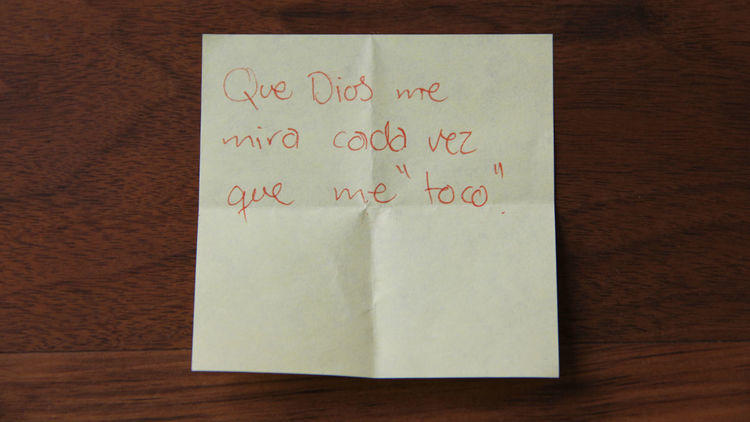 Que Dios me
mira cada vez
que me "toco".